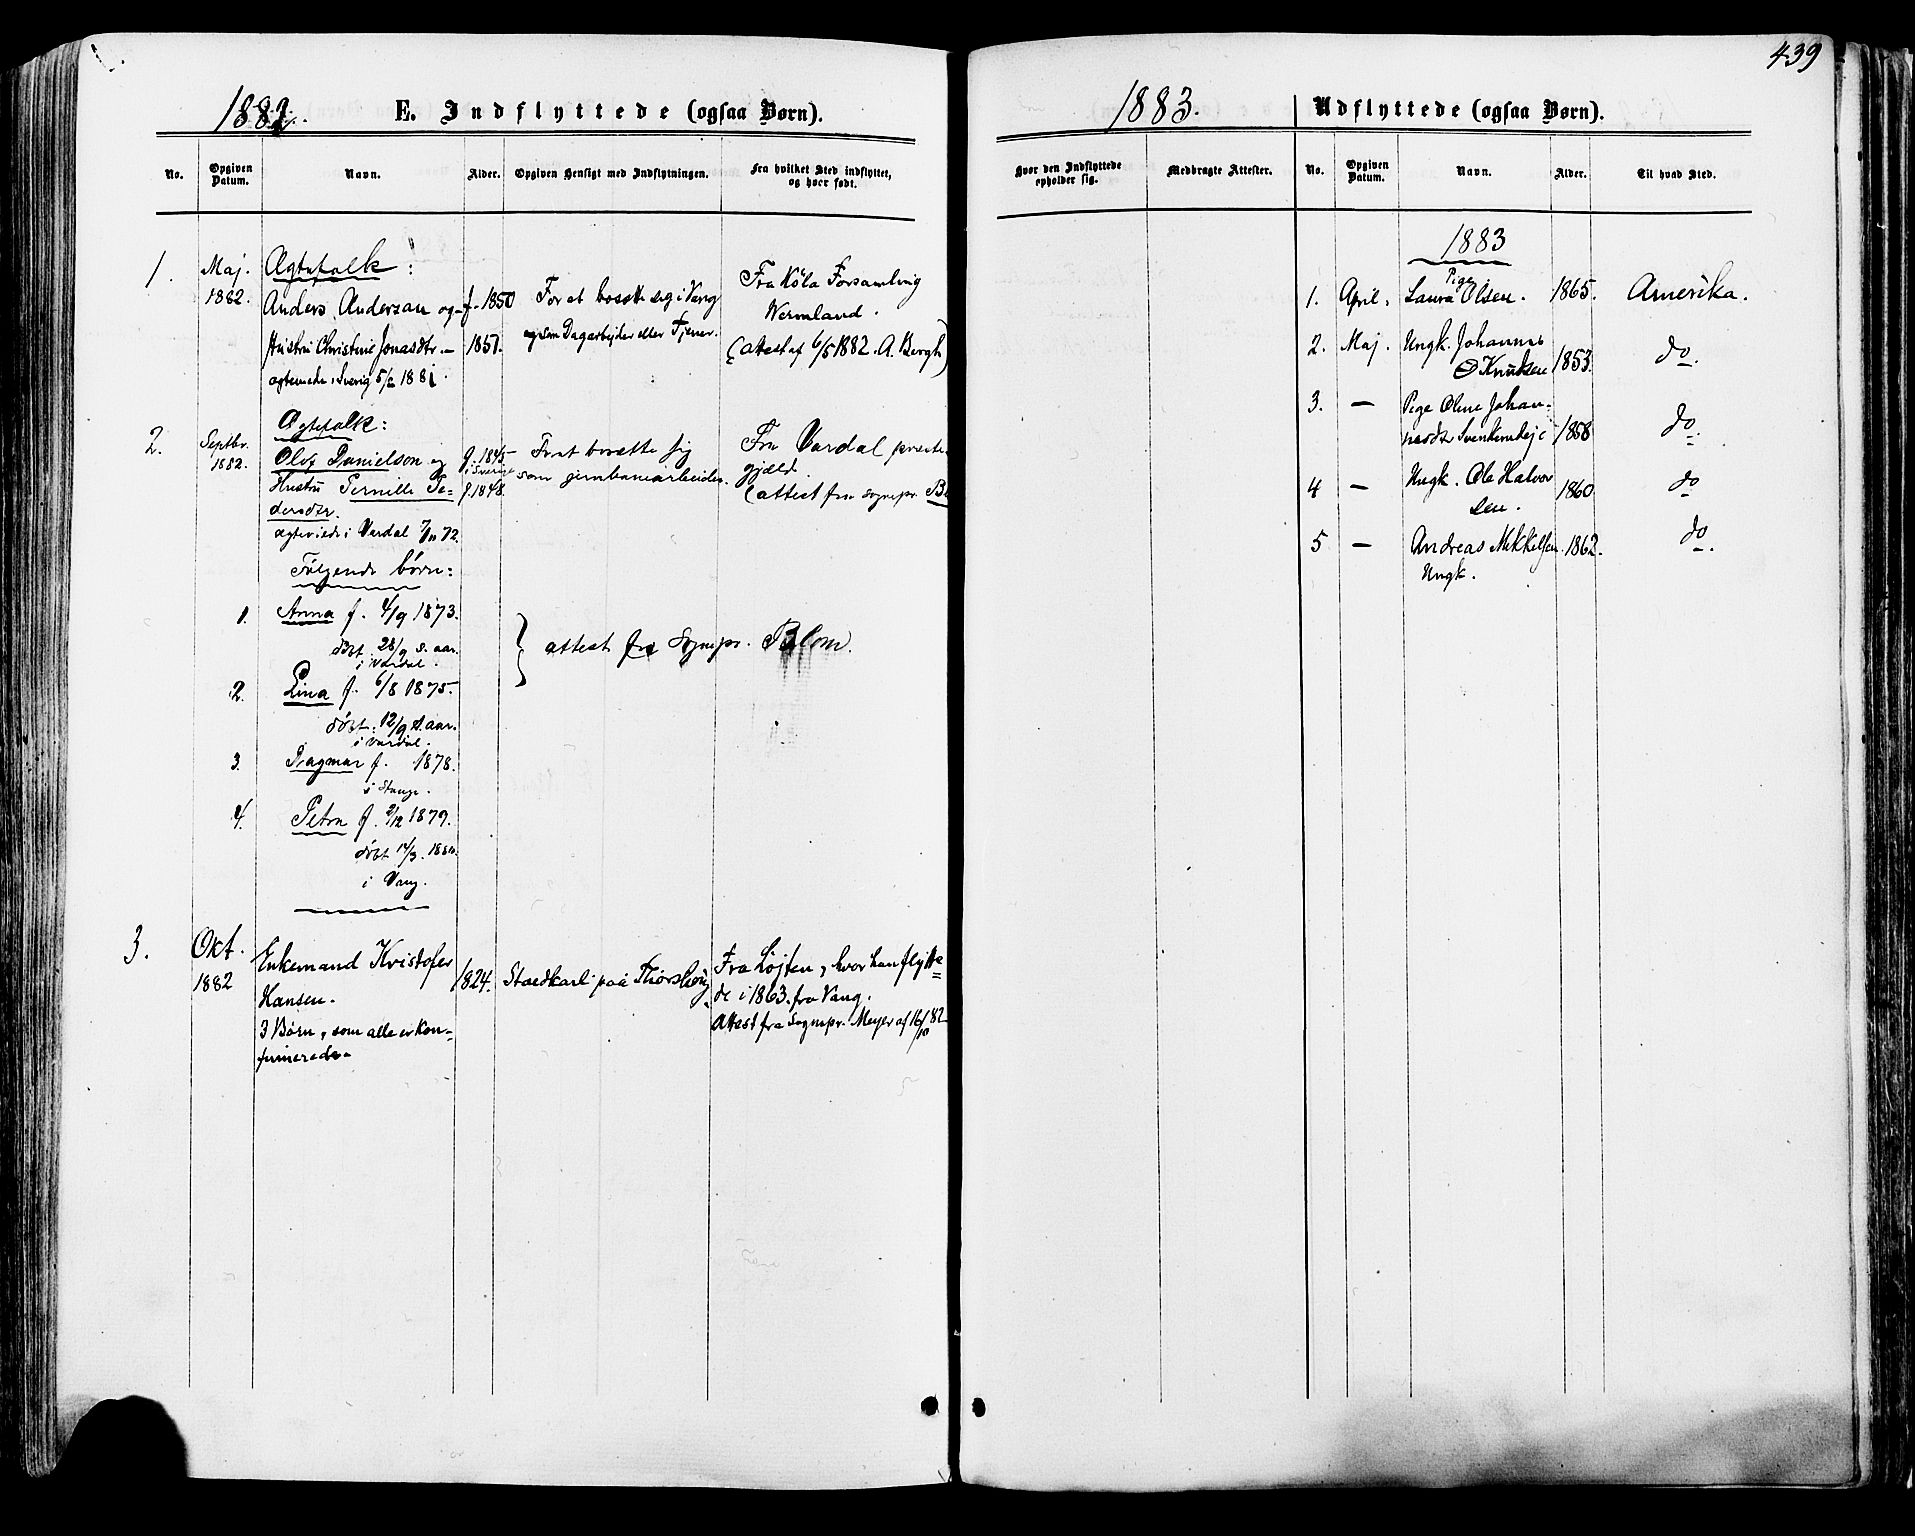 439
1882. E. Indflyttede (ogsaa Børn).
No. Opgiven Datum. Navn. Alder. Opgiven Hensigt med Indflytningen. Fra hvilket Sted indflyttet, og hvor født.
1. Maj. 1882. Ægtefolk:
Anders Anderson og f. 1850 For at bosætte sig i Vang Fra Køla Forsamling
Hustru Christine Jonasdtr. 1851. som Dagarbejder eller Tjener. Wermland.
ægteviede i Sverig 5/2 1881. (attest af 6/5 1882. A. Bergh)
2. Septbr. 1882. Ægtefolk:
Olof Danielson og f. 1845 i Sverige For at bosætte sig Fra Vardal præste-
Hustru Pernille Pe- f. 1848. som jernbanearbeider. gjæld.
dersdtr. (attest fra sognepr. Bl
ægteviede i Vardal 7/11 72.
Følgende børn:
1. Anna f. 4/9 1873.
døbt 28/9 s. aar. i Vardal.
} attest fra Sognepr. Blom.
2. Lina f. 6/8 1875.
døbt. 12/9 s. aar.
i Vardal.
3. Dagmar f. 1878.
i Stange.
4. Petra f. 9/12 1879.
døbt 14/3. 1880.
i Vang.
3. Okt. 1882 Enkemand Kristofer Hansen. 1824. Staldkarl paa Thorshoug Fra Løjten, hvor han flytte-
de i 1863 fra Vang.
3 Børn, som alle er kon- Attest fra Sognepr. Meyer af 16/10 82
firmerede.
1883. Udflyttede (ogsaa Børn).
Hvor den Indflyttede opholder sig. Medbragte Attester. No. Opgiven Datum. Navn. Alder. Til hvad Sted.
1883
1. April. Pige Laura Olsen. 1865. Amerika.
2. Maj. Ungk. Johannes
Knutsen 1853. do.
3. — Pige Oline Johan-
nesdtr 1858 do.
4 — Ungk. Ole Halvor
sen. 1860 do
5 — Andreas Mikkelsen. 1862. do.
Ungk.